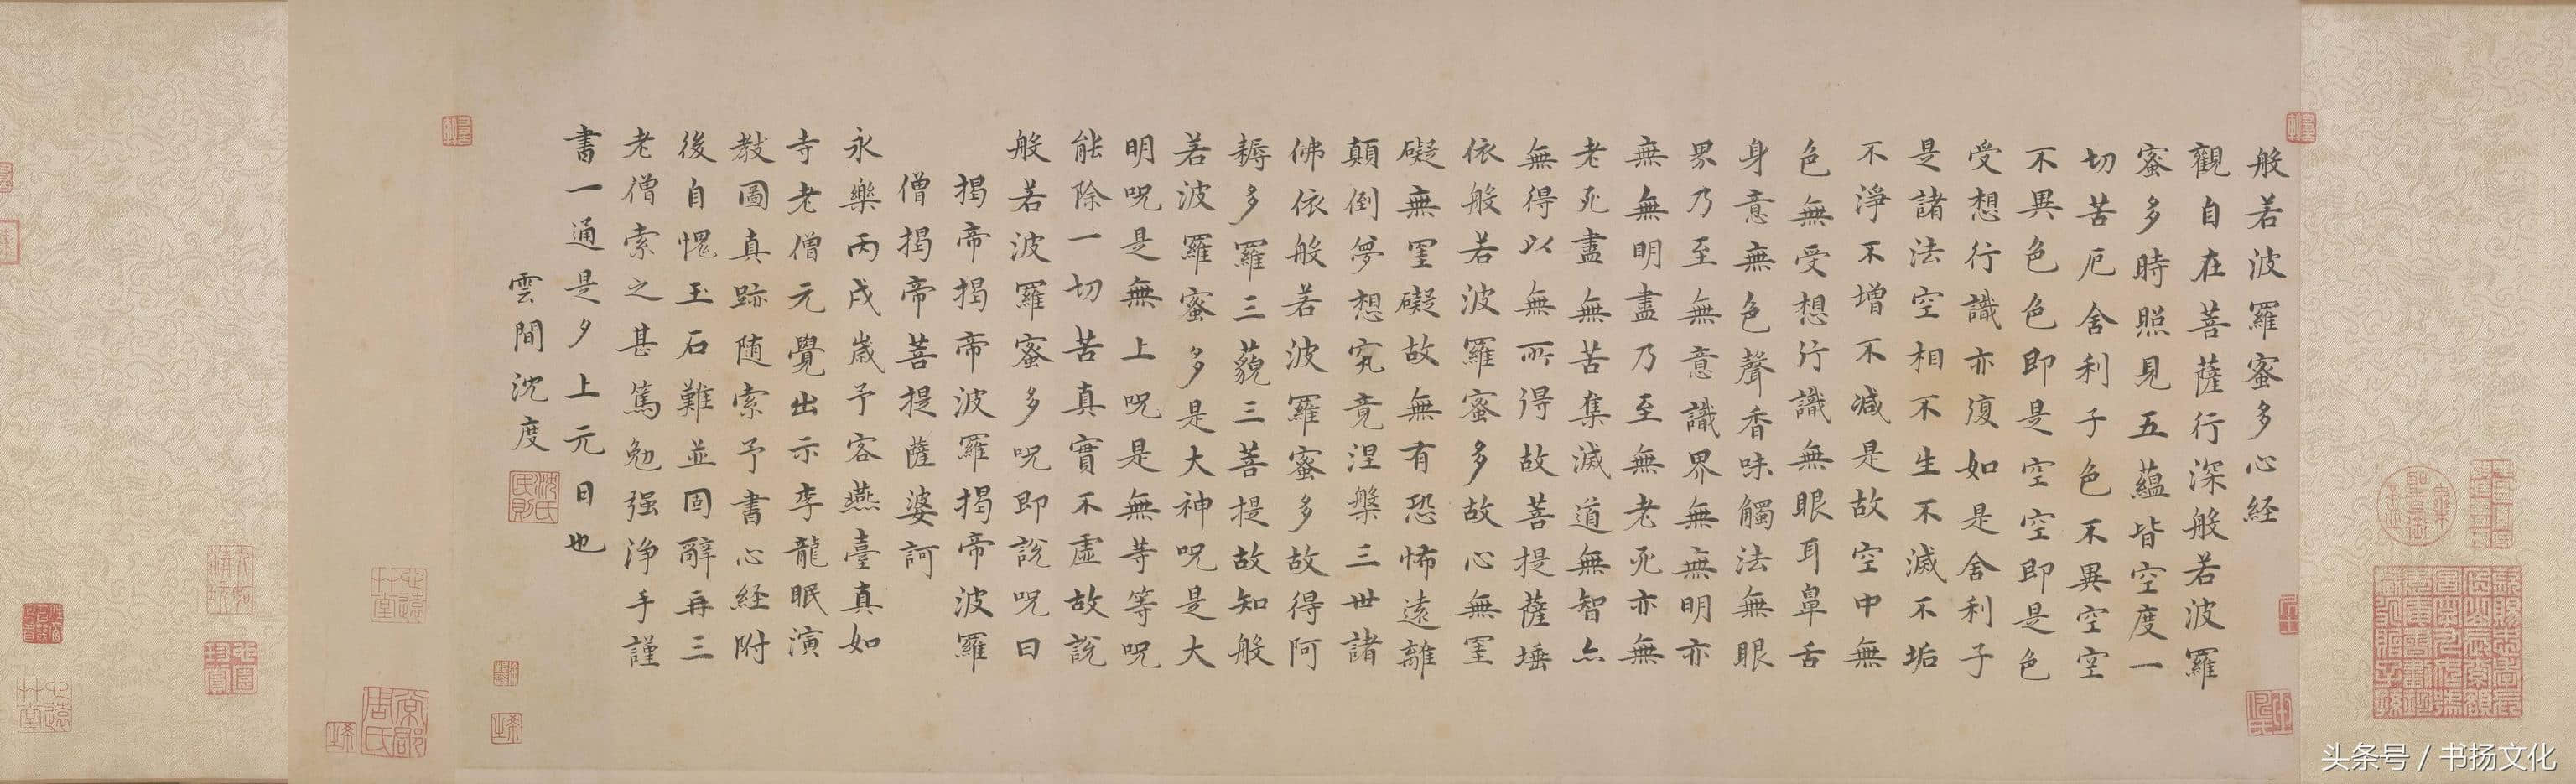 般若波羅蜜多心経
觀自在菩薩行深般若波羅
蜜多時照見五蘊皆空度一
切苦厄舍利子色不異空空
不異色色即是空空即是色
受想行識亦復如是舍利子
是諸法空相不生不滅不垢
不淨不増不减是故空中無
色無受想行識無眼耳鼻舌
身意無色聲香味觸法無眼
界乃至無意識界無無明亦
無無明盡乃至無老死亦無
老死盡無苦集滅道無智亦
無得以無所得故菩提薩埵
依般若波羅蜜多故心無罣
礙無罣礙故無有恐怖遠離
顛倒夢想究竟涅槃三世諸
佛依般若波羅蜜多故得阿
耨多羅三藐三菩提故知般
若波羅蜜多是大神呪是大
明呪是無上呪是無等等呪
能除一切苦真實不虛故說
般若波羅蜜多呪即說呪曰
揭帝揭帝波羅揭帝波羅
僧揭帝菩提薩婆訶
永樂丙戌嵗予客燕臺真如
寺老僧元覺出示李龍眠演
教圖真跡随索予書心経附
後自愧玉石難並固辭再三
老僧索之甚篤勉强浄手謹
書一通是夕上元日也
雲間沈度
沈氏民則
头条号 / 书扬文化